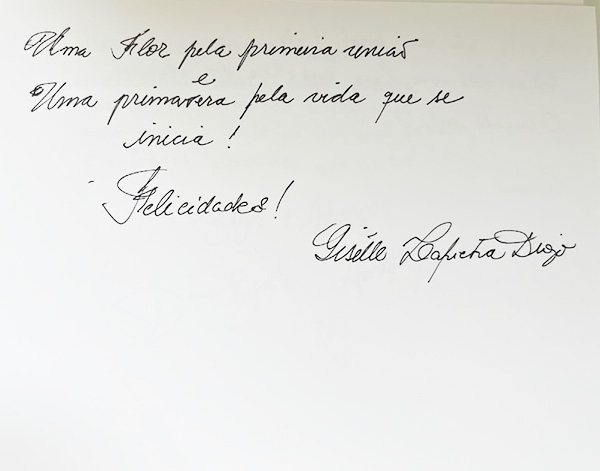 Uma Flor pela primeira união
e
Uma primavera pela vida que se
inicia!
Felicidades!
Giselle Lapietra Diogo